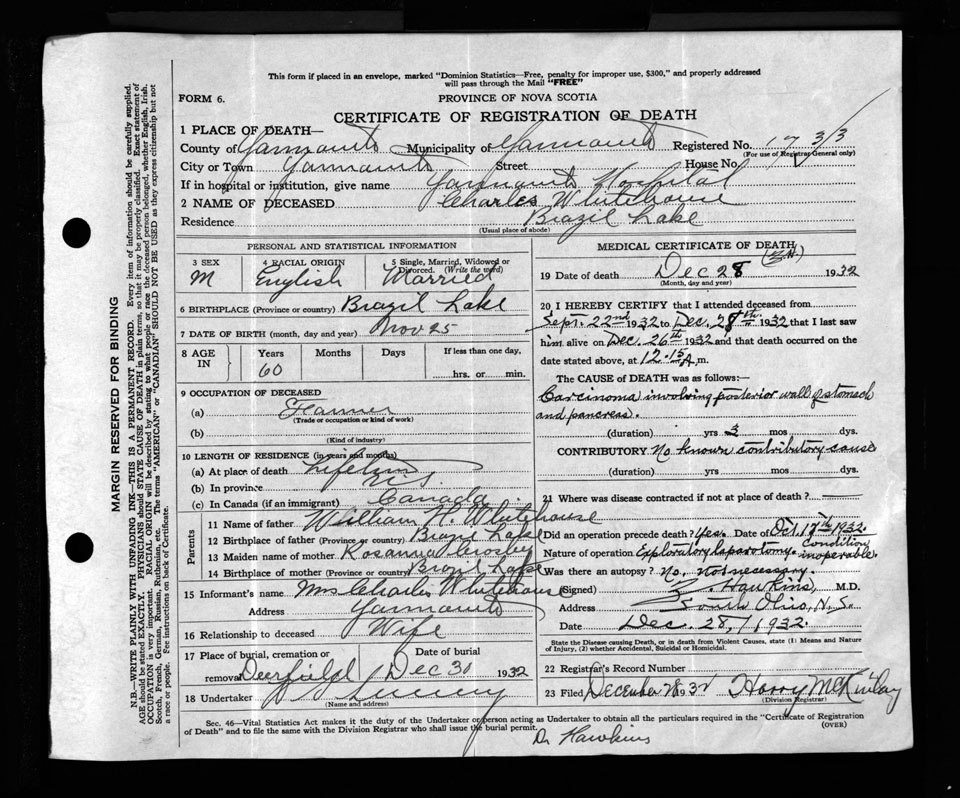 This form if placed in an envelope, marked "Dominion Statistics—Free, penalty for improper use, $300," and properly addressed
will pass through the Mail "FREE"
FORM 6.
PROVINCE OF NOVA SCOTIA
CERTIFICATE OF REGISTRATION OF DEATH
1 PLACE OF DEATH—
County of Yarmouth Municipality of Yarmouth Registered No.
(For use of Registrar General only)
City or Town Yarmouth Street House No.
If in hospital or institution, give name Yarmouth Hospital
2 NAME OF DECEASED Charles Whitehouse
Residence Brazil Lake
(Usual place of abode)
PERSONAL AND STATISTICAL INFORMATION
3 SEX 4 RACIAL ORIGIN 5 Single, Married, Widowed or
Divorced. (Write the word)
M English Married
6 BIRTHPLACE (Province or country) Brazil Lake
7 DATE OF BIRTH (month, day and year) Nov 25
8 AGE IN Years Months Days If less than one day,
60 hrs. or min.
9 OCCUPATION OF DECEASED
(a) Farmer
(Trade or occupation or kind of work)
(b)
(Kind of industry)
10 LENGTH OF RESIDENCE (in years and months)
(a) At place of death Lifetime
(b) In province N.S.
(c) In Canada (if an immigrant) Canada
Parents
11 Name of father William H. Whitehouse
12 Birthplace of father (Province or country) Brazil Lake
13 Maiden name of mother Rosanna Crosby
14 Birthplace of mother (Province or country) Brazil Lake
15 Informant's name Mrs Charles Whitehouse
Address Yarmouth
16 Relationship to deceased Wife
17 Place of burial, cremation or Date of burial
removal Deerfield Dec 30 1932
18 Undertaker
(Name and address)
MEDICAL CERTIFICATE OF DEATH
19 Date of death Dec 28 1932
(Month, day and year)
20 I HEREBY CERTIFY that I attended deceased from
Sept. 22nd 1932 to Dec. 28th 1932 that I last saw
him alive on Dec. 26th 1932 and that death occurred on the
date stated above, at 12.15 A.m.
The CAUSE OF DEATH was as follows:—
Carcinoma involving posterior wall of stomach
and pancreas.
(duration) yrs 3 mos dys.
CONTRIBUTORY No known contributory cause
(duration) yrs. mos. dys.
21 Where was disease contracted if not at place of death?
Did an operation precede death? Yes. Date of Oct 17th 1932.
Nature of operation Exploratory laparotomy. Condition inoperable.
Was there an autopsy? No, not necessary.
(Signed) Z. Hawkins, M.D.
Address South Ohio, N.S.
Date Dec. 28, 1932.
State the Disease causing Death, or in death from Violent Causes, state (1) Means and Nature
of Injury, (2) whether Accidental, Suicidal or Homicidal.
22 Registrar's Record Number
23 Filed December 28 1932 Harry McKinlay
(Division Registrar)
Sec. 46—Vital Statistics Act makes it the duty of the Undertaker or person acting as Undertaker to obtain all the particulars required in the "Certificate of Registration
of Death" and to file the same with the Division Registrar who shall issue the burial permit. (OVER)
Dr Hawkins
MARGIN RESERVED FOR BINDING
N.B.—WRITE PLAINLY WITH UNFADING INK—THIS IS A PERMANENT RECORD. Every item of information should be carefully supplied.
AGE should be stated EXACTLY. PHYSICIANS should STATE CAUSE OF DEATH in plain terms, so that it may be properly classified. Exact statement of
OCCUPATION is very important. RACIAL ORIGIN will be described by stating to what people or race the deceased person belonged, whether English, Irish,
Scotch, French, German, Russian, Ruthenian, etc. The terms "AMERICAN" or "CANADIAN" SHOULD NOT BE USED as they express citizenship but not
a race or people. See instructions on back of Certificate.